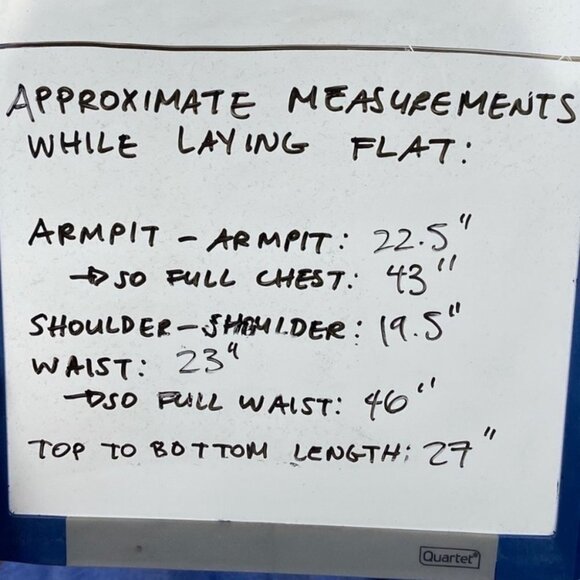 APPROXIMATE MEASUREMENTS
WHILE LAYING FLAT:
ARMPIT - ARMPIT: 22.5"
→ SO FULL CHEST: 43"
SHOULDER-SHOULDER: 19.5"
WAIST: 23"
→ SO FULL WAIST: 46"
TOP TO BOTTOM LENGTH: 27"
Quartet®